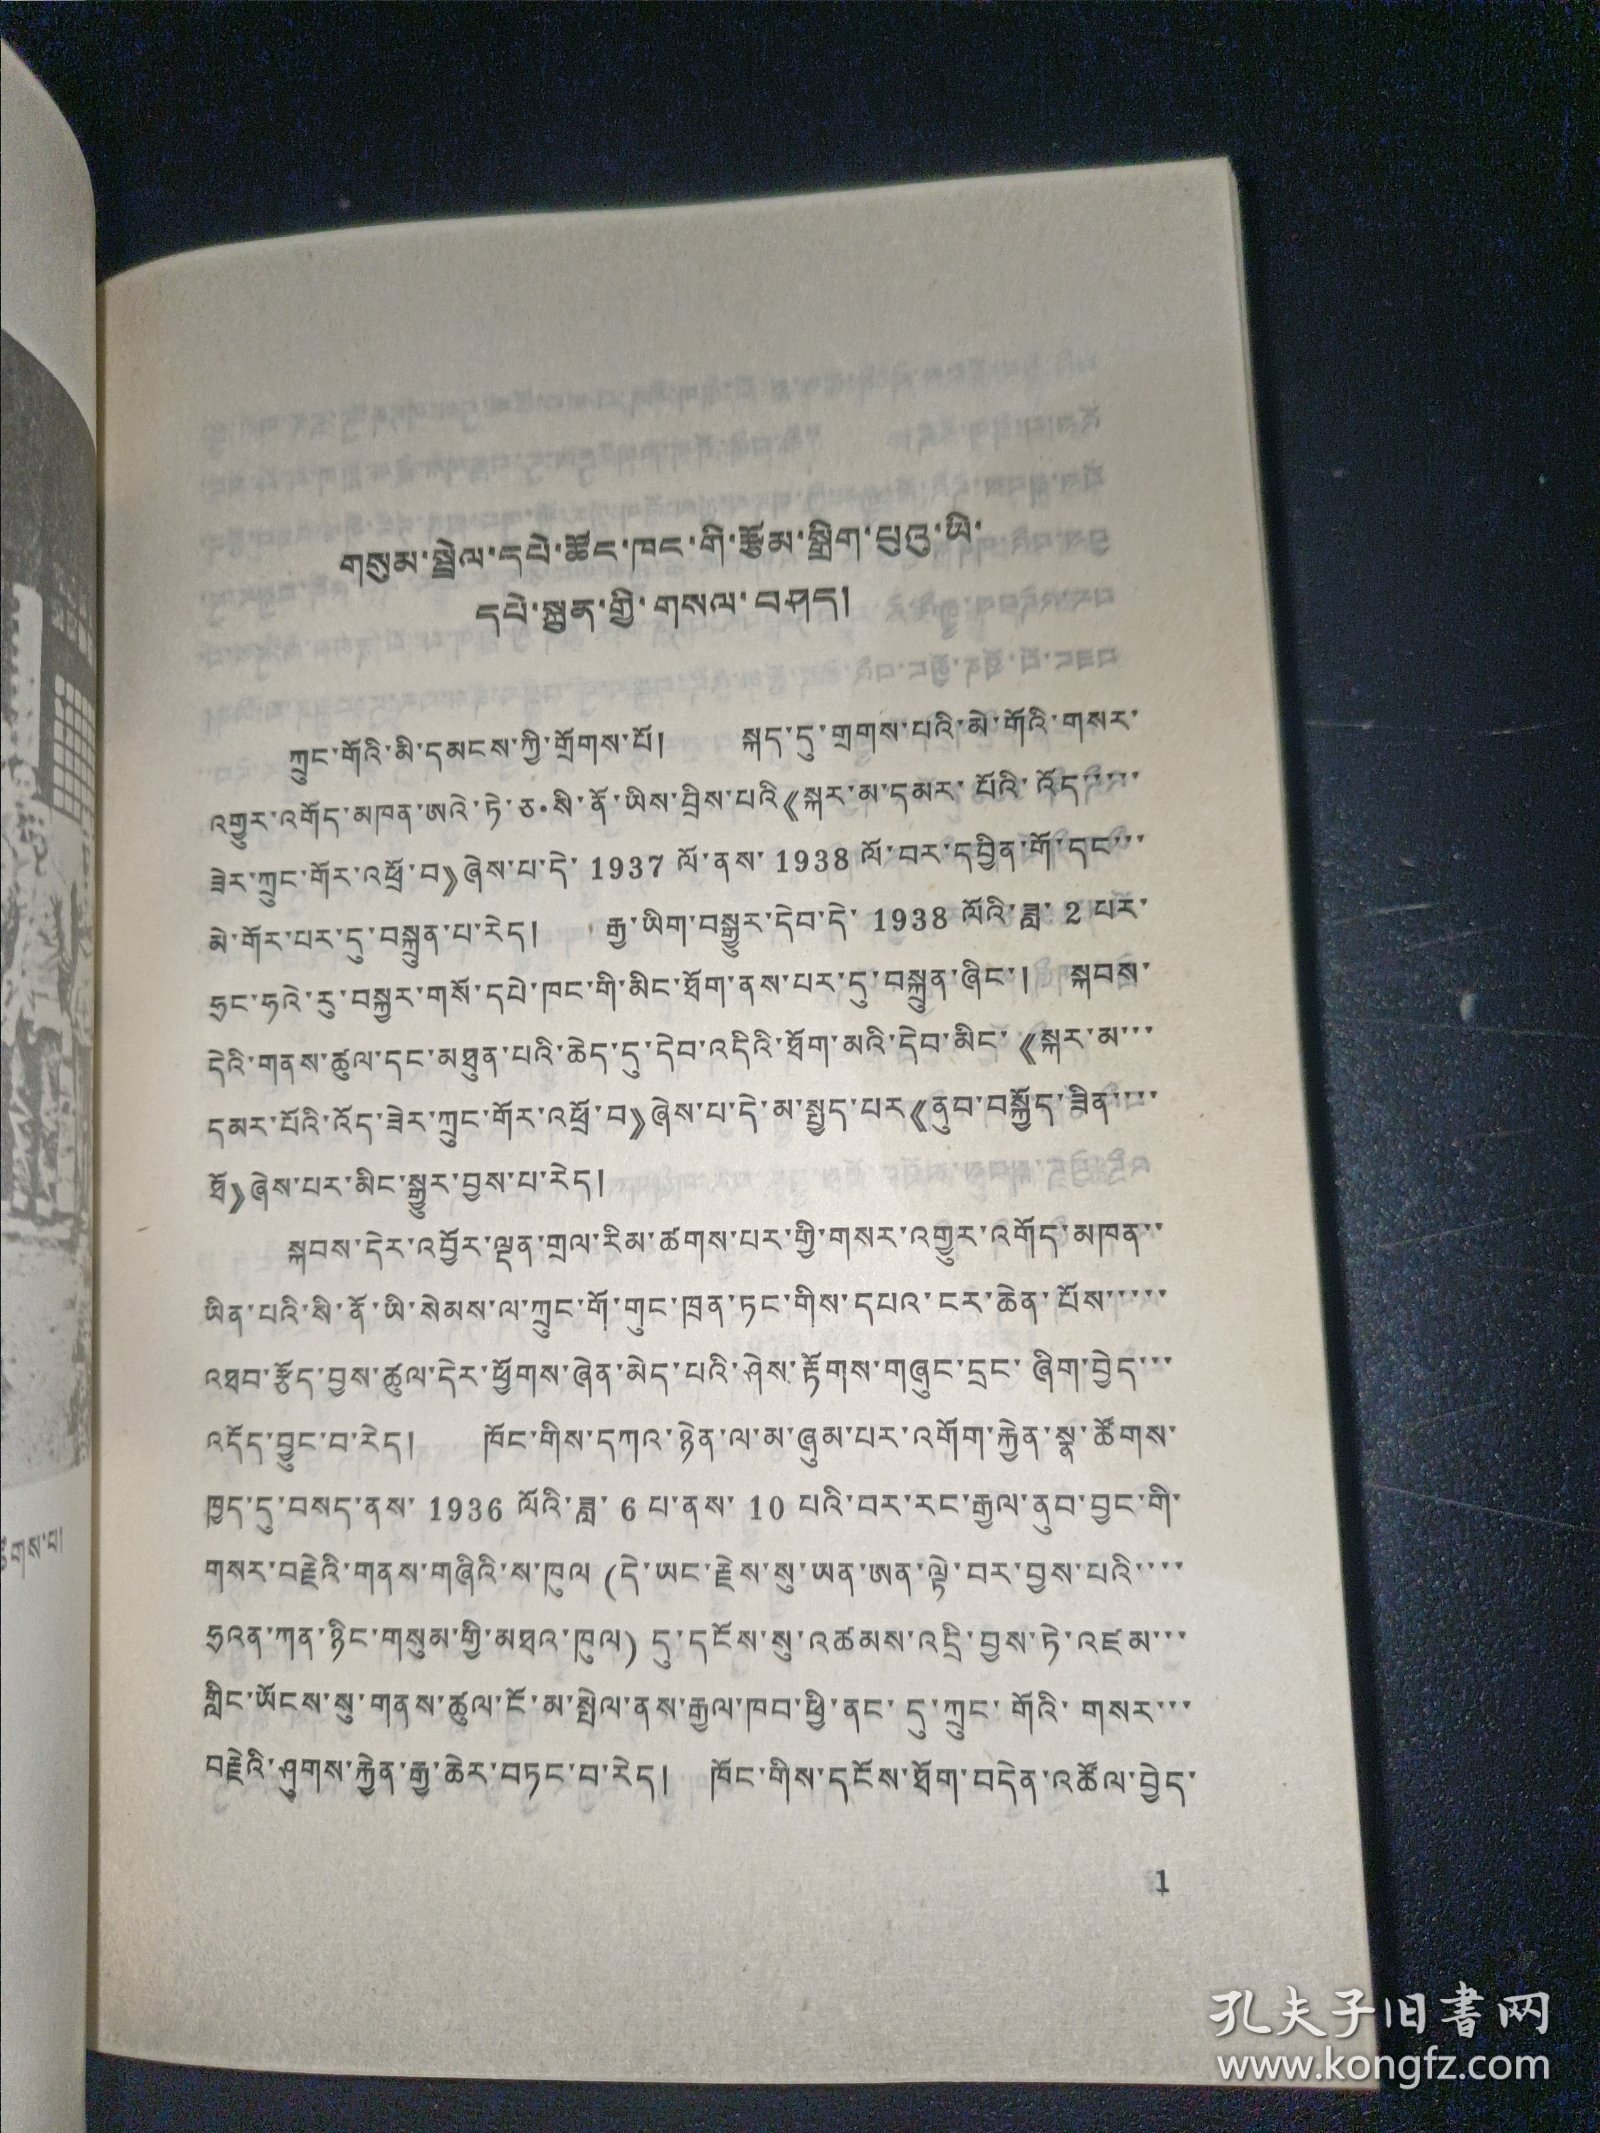 གསུམ་སྦྲེལ་དཔེ་ཚོང་ཁང་གི་རྩོམ་སྒྲིག་པུའུ་ཡི་
དཔེ་སྐྲུན་གྱི་གསལ་བཤད།
ཀྲུང་གོའི་མི་དམངས་ཀྱི་གྲོགས་པོ། སྐད་དུ་གྲགས་པའི་མེ་གོའི་གསར་
འགྱུར་འགོད་མཁན་ཨའེ་ཏེ་ཅ·སི་ནོ་ཡིས་བྲིས་པའི《སྐར་མ་དམར་པོའི་འོད་་་་་
ཟེར་ཀྲུང་གོར་འཕྲོ་བ》ཞེས་པ་དེ་ 1937 ལོ་ནས་ 1938 ལོ་བར་དབྱིན་གོ་དང་་་་
མེ་གོར་པར་དུ་བསྐྲུན་པ་རེད། རྒྱ་ཡིག་བསྒྱུར་དེབ་དེ་ 1938 ལོའི་ཟླ་ 2 པར་
ཧྲང་ཧའེ་རུ་བསྐྱར་གསོ་དཔེ་ཁང་གི་མིང་ཐོག་ནས་པར་དུ་བསྐྲུན་ཞིང་། སྐབས་
དེའི་གནས་ཚུལ་དང་མཐུན་པའི་ཆེད་དུ་དེབ་འདིའི་ཐོག་མའི་དེབ་མིང་《སྐར་མ་་་་
དམར་པོའི་འོད་ཟེར་ཀྲུང་གོར་འཕྲོ་བ》ཞེས་པ་དེ་མ་སྤྱད་པར《ནུབ་བསྐྱོད་ཟིན་་་་་
ཐོ》ཞེས་པར་མིང་སྒྱུར་བྱས་པ་རེད།
སྐབས་དེར་འབྱོར་ལྡན་གྲལ་རིམ་ཚགས་པར་གྱི་གསར་འགྱུར་འགོད་མཁན་་་
ཡིན་པའི་སི་ནོ་ཡི་སེམས་ལ་ཀྲུང་གོ་གུང་ཁྲན་ཏང་གིས་དཔའ་ངར་ཆེན་པོས་་་་་་
འཐབ་རྩོད་བྱས་ཚུལ་དེར་ཕྱོགས་ཞེན་མེད་པའི་ཤེས་རྟོགས་གཞུང་དྲང་ཞིག་བྱེད་་་་
འདོད་བྱུང་བ་རེད། ཁོང་གིས་དཀའ་ཉེན་ལ་མ་ཞུམ་པར་འགོག་རྐྱེན་སྣ་ཚོགས་
ཁྱད་དུ་བསད་ནས་ 1936 ལོའི་ཟླ་ 6 པ་ནས་ 10 པའི་བར་རང་རྒྱལ་ནུབ་བྱང་གི་
གསར་བརྗེའི་གནས་གཞིའི་ས་ཁུལ (དེ་ཡང་རྗེས་སུ་ཡན་ཨན་ལྟེ་བར་བྱས་པའི་་་་་
ཧྲའན་ཀན་ཉིང་གསུམ་གྱི་མཐའ་ཁུལ) དུ་དངོས་སུ་འཚམས་འདྲི་བྱས་ཏེ་འཛམ་་་་
གླིང་ཡོངས་སུ་གནས་ཚུལ་ངོ་མ་སྤེལ་ནས་རྒྱལ་ཁབ་ཕྱི་ནང་དུ་ཀྲུང་གོའི་གསར་་་་
བརྗེའི་ཤུགས་རྐྱེན་རྒྱ་ཆེར་བཏང་བ་རེད། ཁོང་གིས་དངོས་ཐོག་བདེན་འཚོལ་བྱེད་
1
孔夫子旧书网
www.kongfz.com